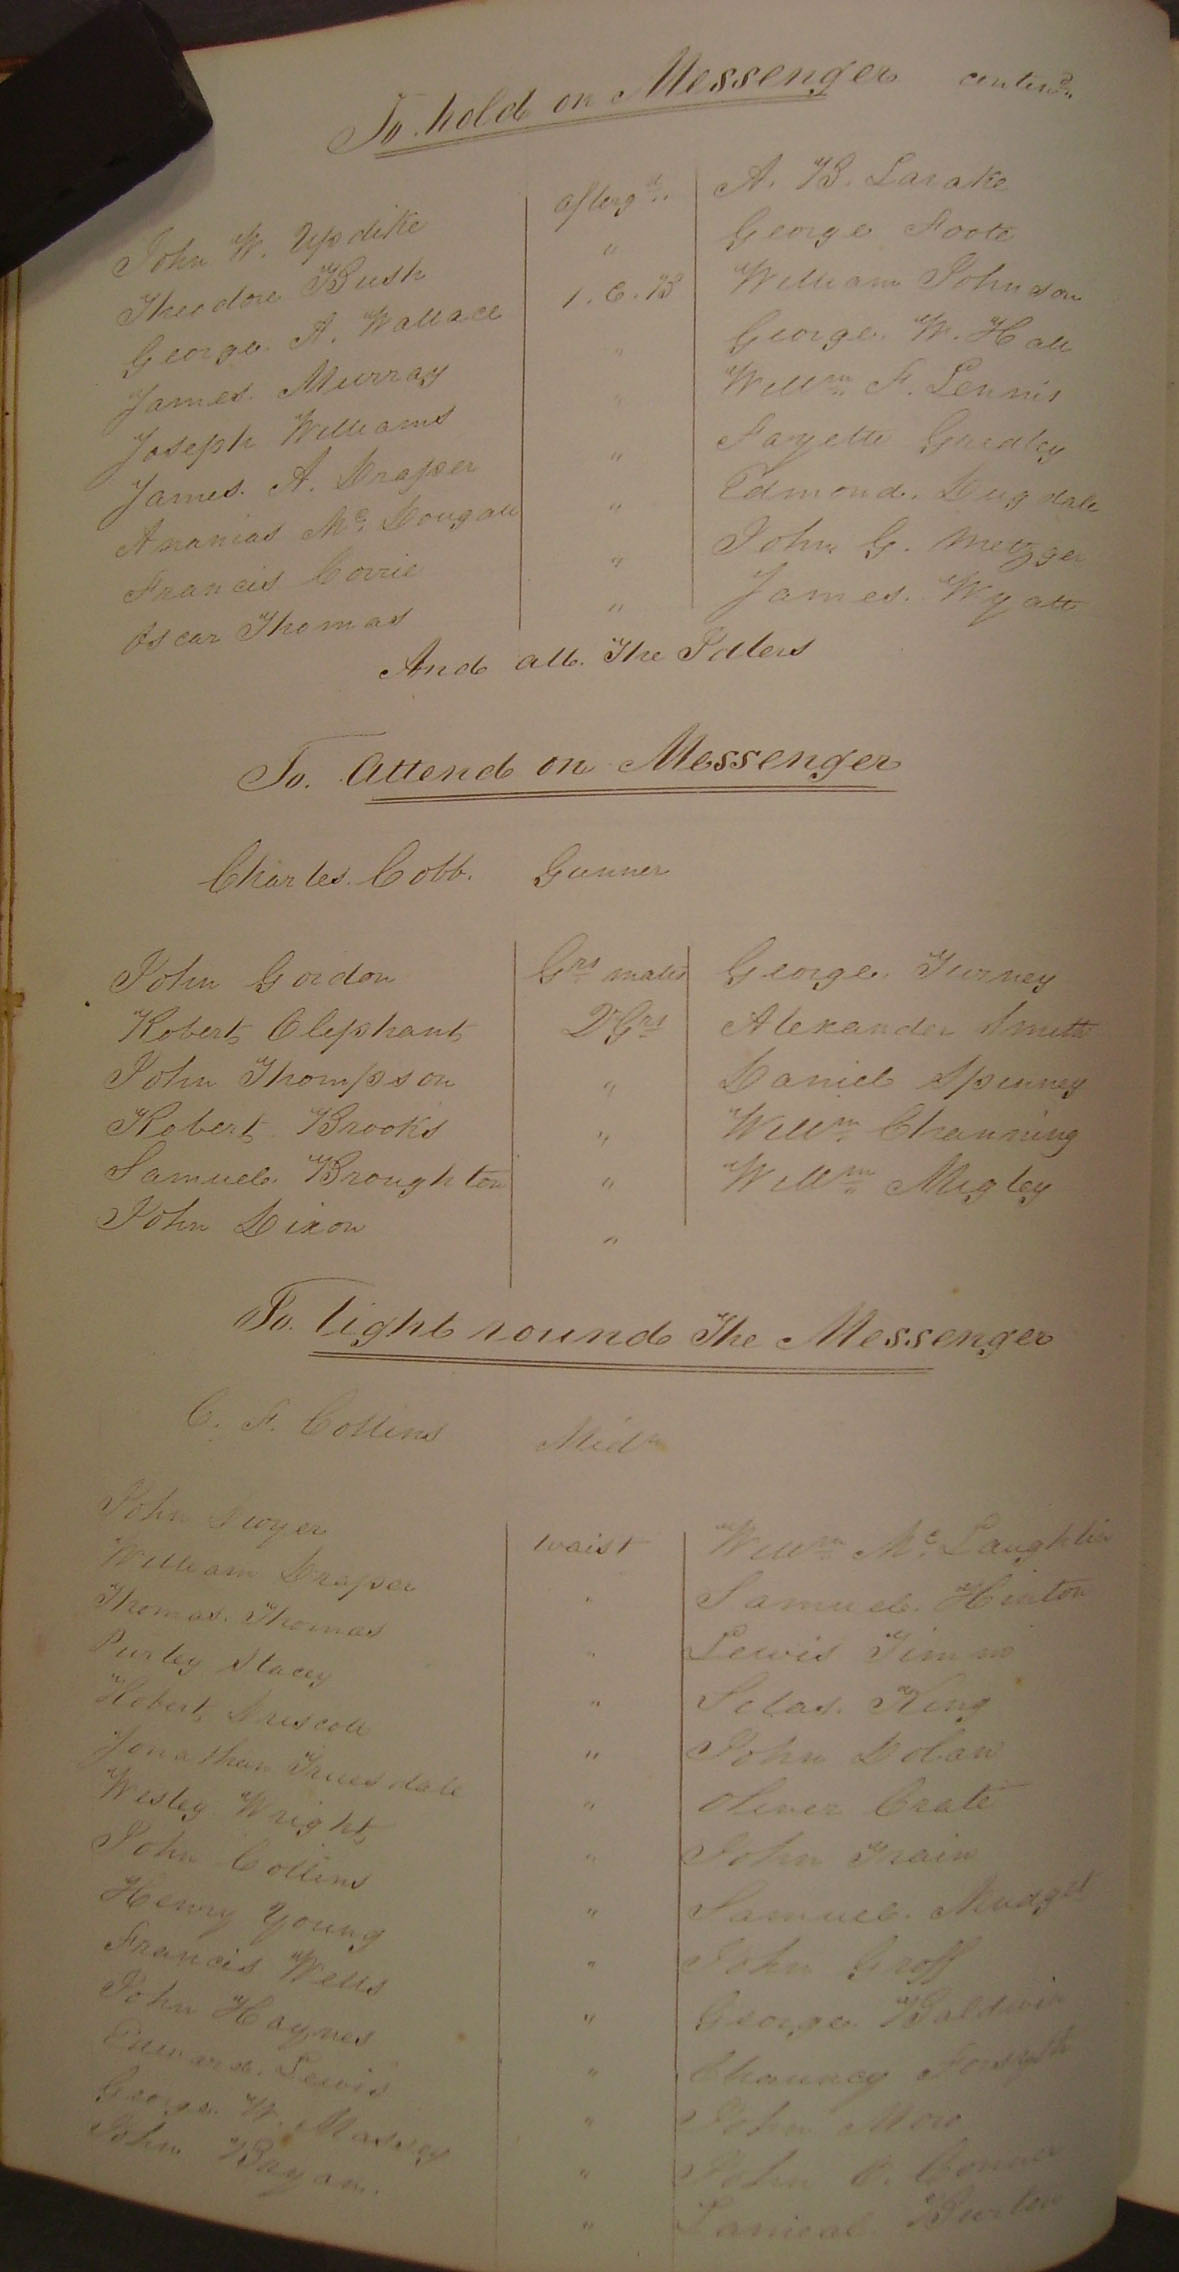 To hold on Messenger contind.
John W. Updike afterg'd. A. B. Larake
Theodore Bush " George Foote
George A. Wallace 1. C. B William Johnson
James Murray " George W. Hall
Joseph Williams " Willm F. Lennis
James A. Draper " Fayette Gridley
Ananias Mc. Dougall " Edmond Dugdale
Francis Corrie " John G. Metzger
Oscar Thomas " James Wyatt
And all The Idlers
To Attend on Messenger
Charles Cobb. Gunner
John Gordon Grs mates George Turney
Robert Olephant 2 Grs Alexander Smith
John Thompson " Daniel Spinney
Robert Brooks " Willm Channing
Samuel Broughton " Willm Migley
John Dixon "
To light round The Messenger
C. F. Collins Midn
John Dwyer waist Willm Mc. Laughlin
William Draper " Samuel Hinton
Thomas Thomas " Lewis Timms
Purley Stacey " Silas King
Driscoll " John Dolan
Jonathan Truesdale " Oliver Crate
Wesley Wright " John Train
John Collins " Samuel Mudget
Henry Young " John Groff
Francis Wells " George Baldwin
John Haynes " Chauncy Forsyth
Edward Lewis " John
George W. Massey " John O. Conner
John " Burton